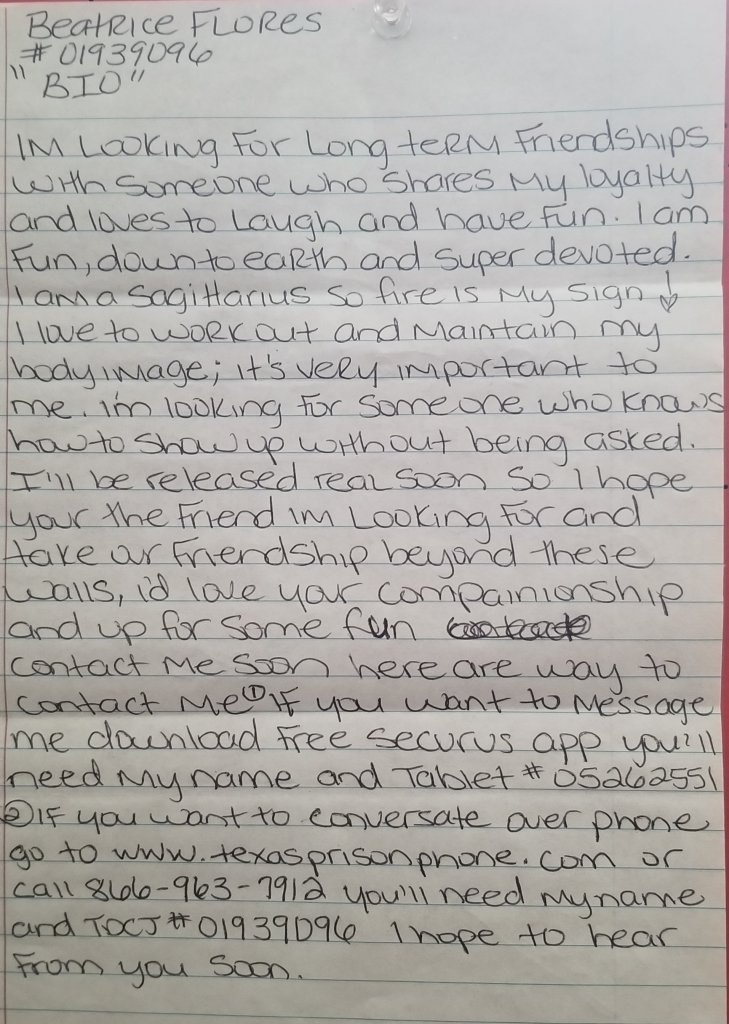 BEATRICE FLORES
# 01939096
"BIO"
IM LOOKING FOR LONG teRM Friendships
with someone who shares My loyalty
and loves to Laugh and have fun. I am
Fun, down to eaRth and super devoted.
I am a Sagittarius so fire is My sign
I love to work out and Maintain my
body image; it's very important to
me. i'm looking for someone who knows
how to show up without being asked.
I'll be released real soon so I hope
your the friend im Looking for and
take our friendship beyond these
walls, i'd love your compainionship
and up for some fun
contact Me soon here are way to
contact Me ① IF you want to Message
me download free securus app you'll
need My name and Tablet # 05262551
② IF you want to conversate over phone
go to www.texasprisonphone.com or
call 866-963-7912 you'll need My name
and TDCJ # 01939096 I hope to hear
From you soon.